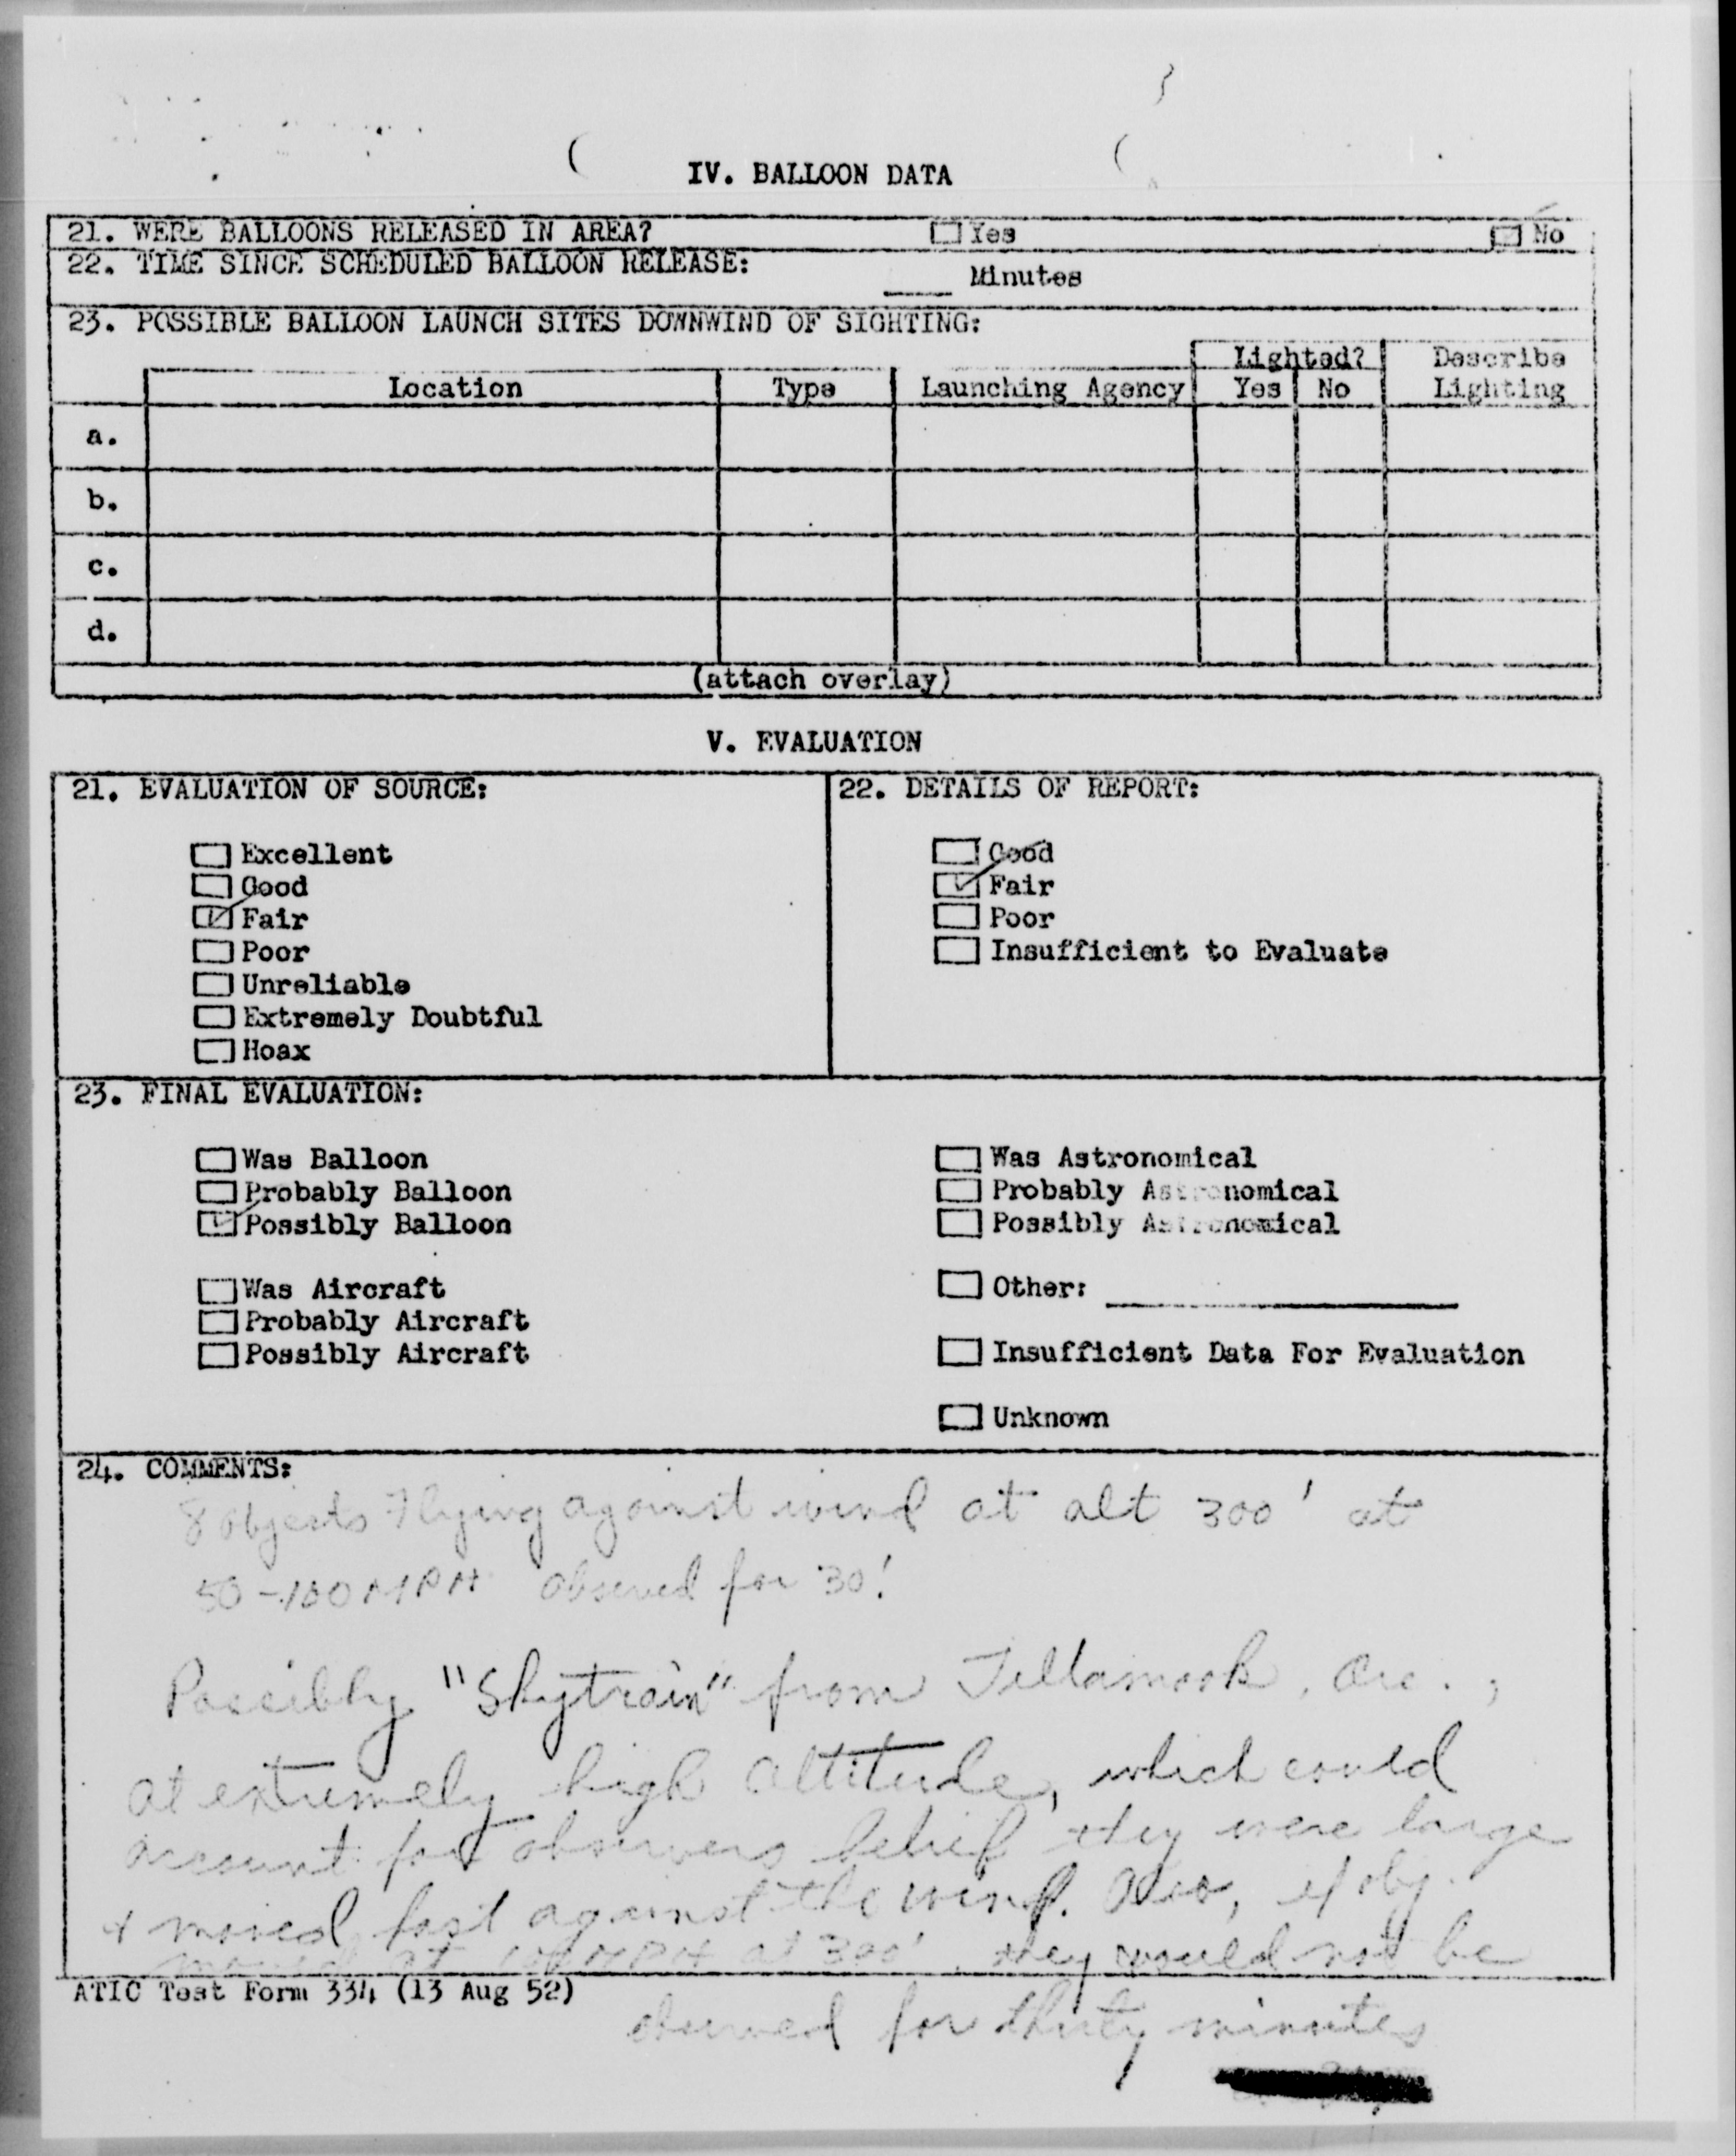 IV. BALLOON DATA
21. WERE BALLOONS RELEASED IN AREA? Yes No
22. TIME SINCE SCHEDULED BALLOON RELEASE: ____ Minutes
23. POSSIBLE BALLOON LAUNCH SITES DOWNWIND OF SIGHTING:
Lighted? Describe
Location Type Launching Agency Yes No Lighting
a.
b.
c.
d.
(attach overlay)
V. EVALUATION
21. EVALUATION OF SOURCE: 22. DETAILS OF REPORT:
Excellent Good
Good Fair
Fair Poor
Poor Insufficient to Evaluate
Unreliable
Extremely Doubtful
Hoax
23. FINAL EVALUATION:
Was Balloon Was Astronomical
Probably Balloon Probably Astronomical
Possibly Balloon Possibly Astronomical
Was Aircraft Other:
Probably Aircraft
Possibly Aircraft Insufficient Data For Evaluation
Unknown
24. COMMENTS:
8 objects flying against wind at alt 300' at
50-100 MPH observed for 30!
Possibly "Skytrain" from Tillamook, Ore.,
at extremely high altitude, which could
account for observers belief they were large
& moved fast against the wind. Also, if obj.
moved at 100 MPH at 300', they would not be
ATIC Test Form 334 (13 Aug 52)
observed for thirty minutes